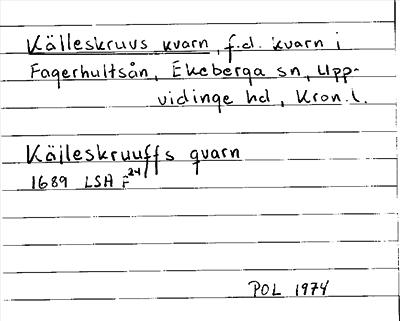 Källeskruvs kvarn, f.d. kvarn i
Fagerhultsån, Ekeberga sn, Upp-
vidinge hd, Kron.l.
Källeskruuffs qvarn
1689 LSA F 24
POL 1974